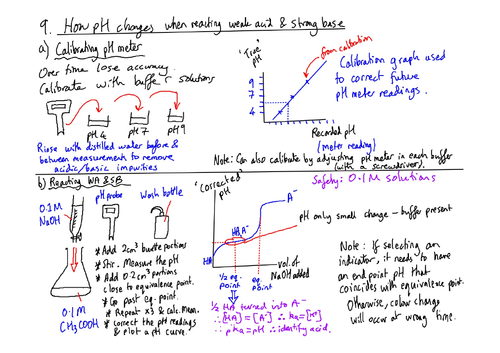 9. How pH changes when reacting weak acid & strong base
a) Calibrating pH meter
Over time lose accuracy.
Calibrate with buffer solutions
pH4 pH7 pH9
Rinse with distilled water before &
between measurement to remove
acidic/basic impurities
'True'
pH
9
7
4
from calibration
Recorded pH
(meter reading)
Calibration graph used
to correct future
pH meter readings.
Note: Can also calibrate by adjusting pH meter in each buffer
(with a screwdriver)
b) Reacting WA & SB
Safety: 0.1M solutions
0.1M
NaOH
pH probe
Wash bottle
* Add 2cm³ burette portions
* Stir. Measure the pH
* Add 0.2cm³ portions
close to equivalence point.
* Go past eq. point.
* Repeat x3 & calc. mean.
* Correct the pH readings
& plot a pH curve.
0.1M
CH₃COOH
'Corrected'
pH
HA
HA
A⁻
A⁻
½ eq.
point
eq
point
vol. of
NaOH added
pH only small change – buffer present
½ HA turned into A⁻
∴ [HA] = [A⁻] ∴ ka = [H⁺]
∴ pka = pH ∴ identify acid.
Note: If selecting an
indicator, it needs to have
an end point pH that
coincides with equivalence point.
Otherwise, colour change
will occur at wrong time.